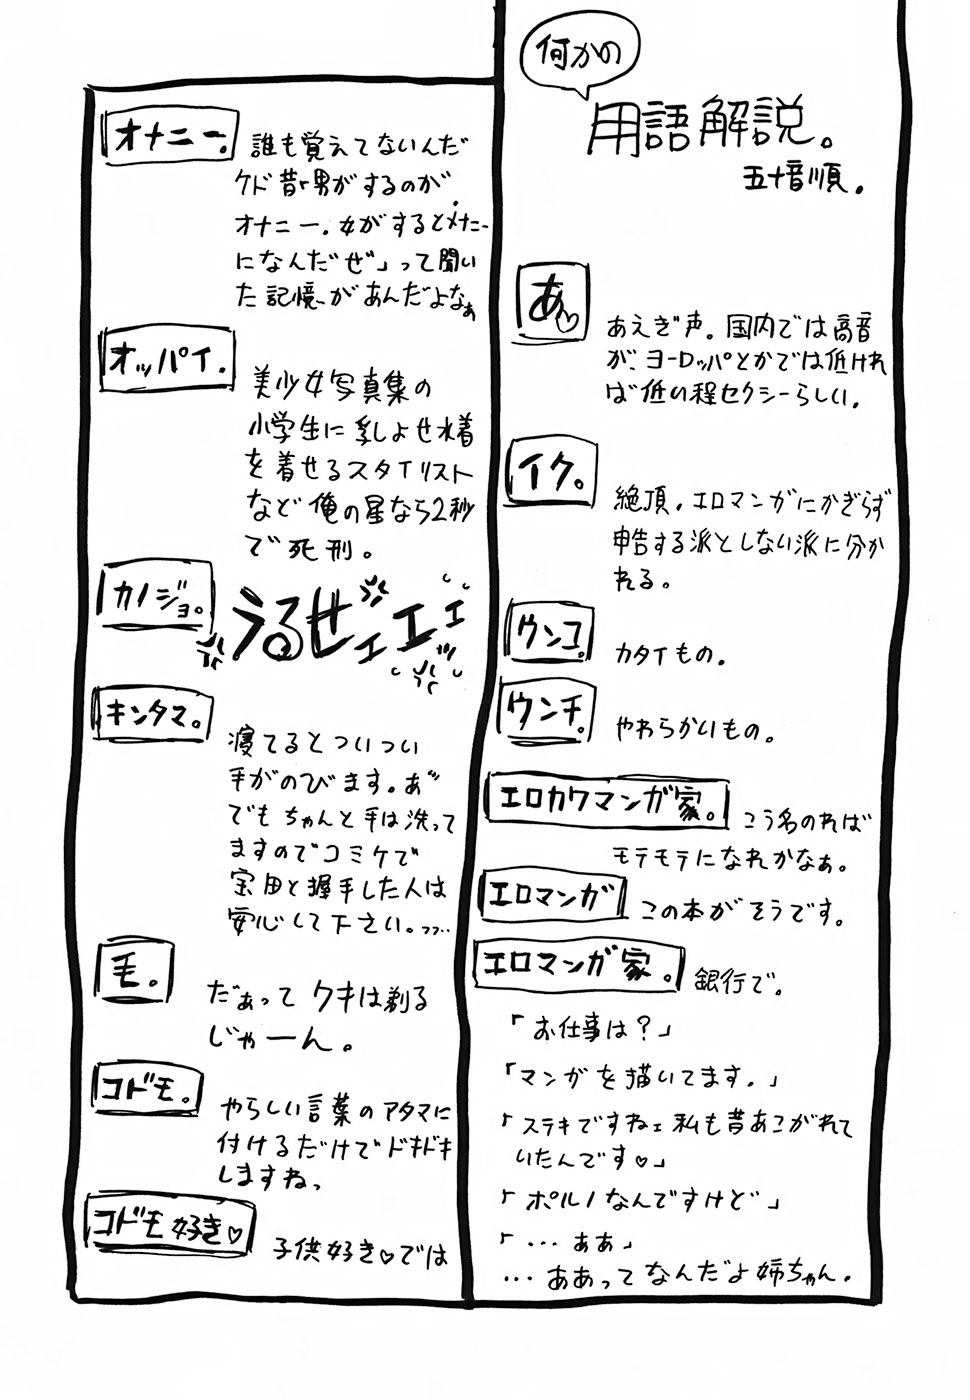 何かの
用語解説。
五十音順。
あ♡
あえぎ声。国内では高音
が、ヨーロッパとかでは低けれ
ば低い程セクシーらしい。
イク。
絶頂。エロマンガにかぎらず
申告する派としない派に分か
れる。
ウンコ。
カタイもの。
ウンチ。
やわらかいもの。
エロカワマンガ家。
こう名のれば
モテモテになれかなぁ。
エロマンガ
この本がそうです。
エロマンガ家。
銀行で。
「お仕事は?」
「マンガを描いてます。」
「ステキですねェ私も昔あこがれて
いたんです♡」
「ポルノなんですけど」
「…ああ」
…ああってなんだよ姉ちゃん。
オナニー。
誰も覚えてないんだ
ケド昔「男がするのが
オナニー。女がするとメナニー
になんだぜ」って聞い
た記憶があんだよなぁ
オッパイ。
美少女写真集の
小学生に乳よせ水着
を着せるスタイリスト
など俺の星なら2秒
で死刑。
カノジョ。
うるせェエェ
キンタマ。
寝てるとついつい
手がのびます。あ゛
でもちゃんと手は洗って
ますのでコミケで
宝田と握手した人は
安心して下さい。ププ…
毛。
だぁってクキは剃る
じゃーん。